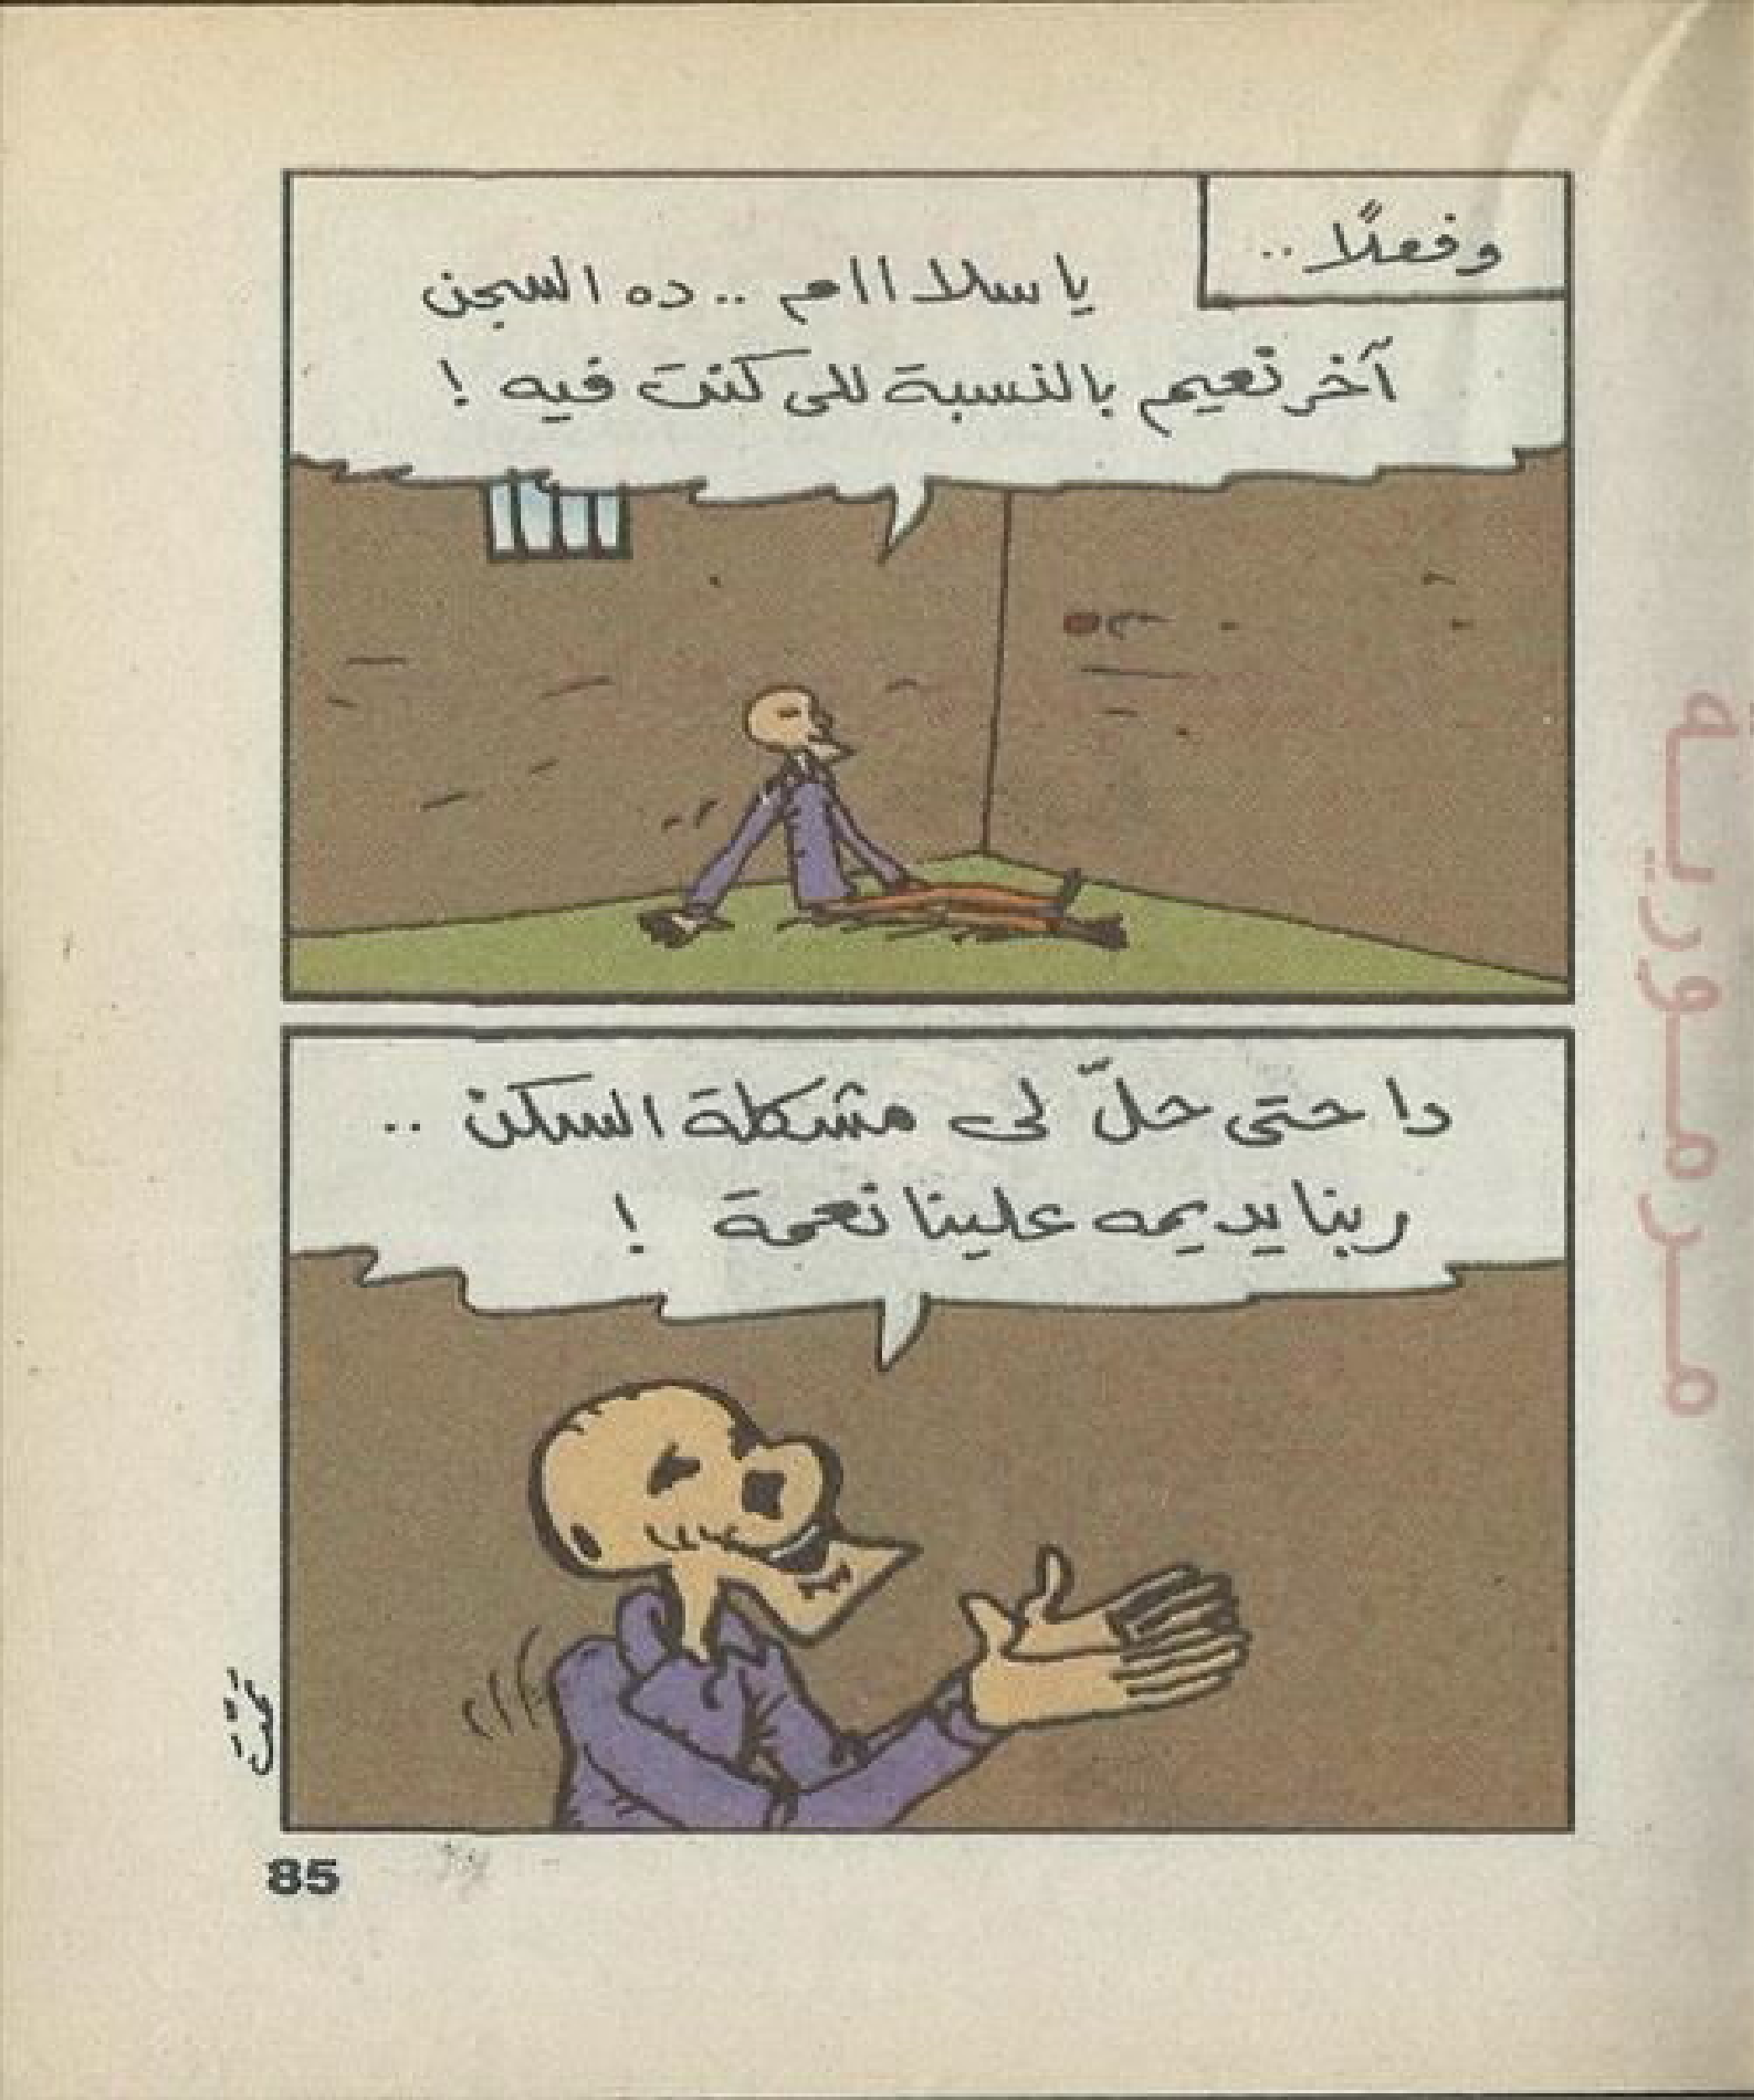 وفعلًا ..
يا سلا ااام .. ده السجن
آخر نعيم بالنسبة للى كنت فيه !
دا حتى حلّ لى مشكلة السكن ..
ربنا يديمه علينا نعمة !
85